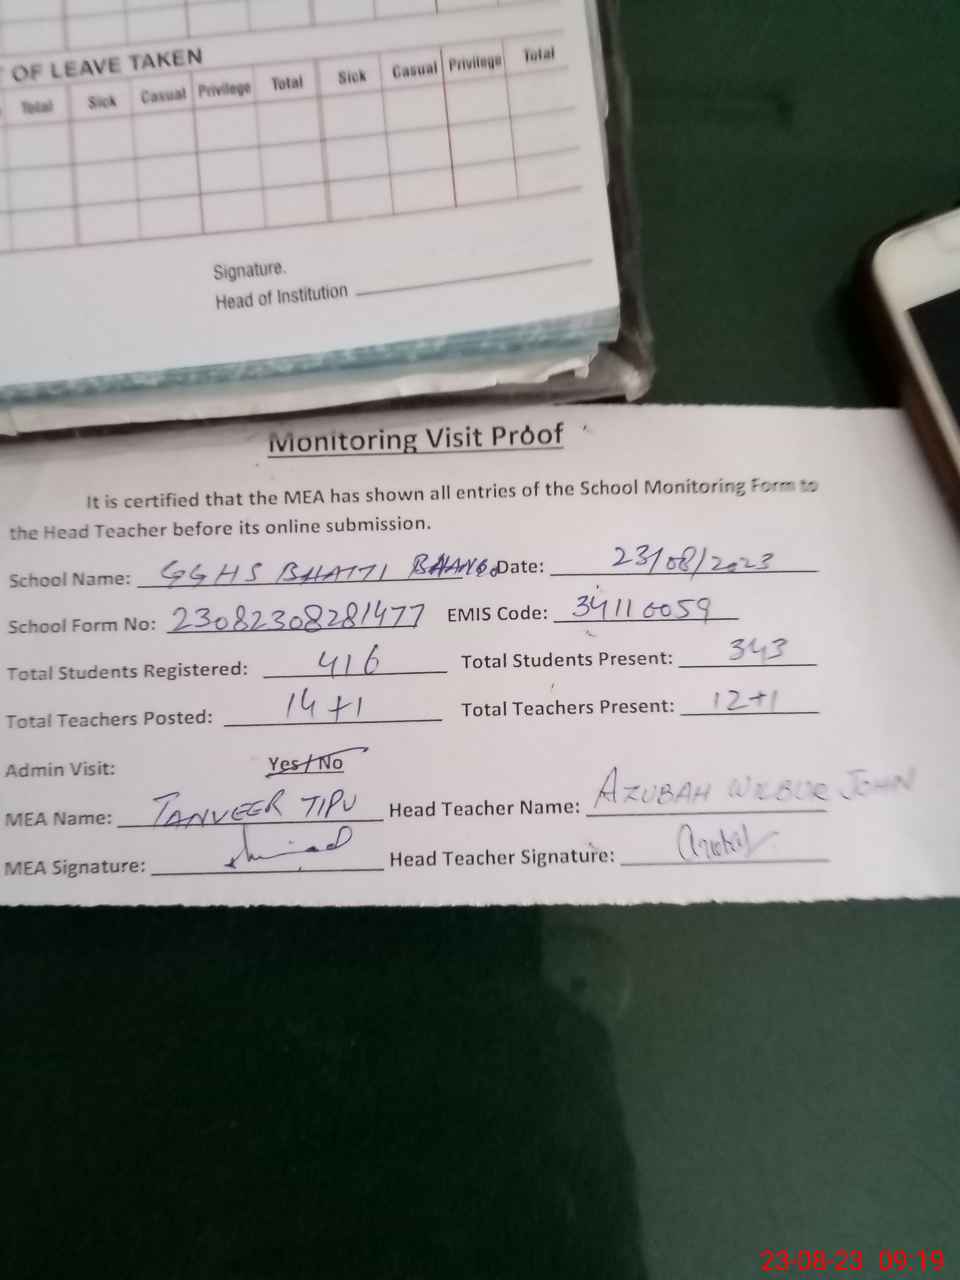 OF LEAVE TAKEN
Total Sick Casual Privilege Total Sick Casual Privilege Total
Signature.
Head of Institution
Monitoring Visit Proof
It is certified that the MEA has shown all entries of the School Monitoring Form to
the Head Teacher before its online submission.
School Name: GGHS BHATTI Date: 23/08/2023
School Form No: 23082308281477 EMIS Code: 34110059
Total Students Registered: 416 Total Students Present: 343
Total Teachers Posted: 14+1 Total Teachers Present: 12+1
Admin Visit: Yes/No
MEA Name: TANVEER TIPU Head Teacher Name: AZUBAH WILBUR JOHN
MEA Signature: Head Teacher Signature:
23-08-23 09:19